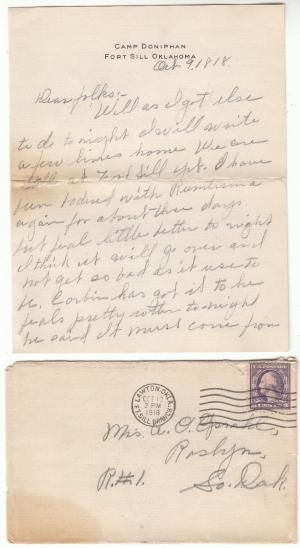 CAMP DONIPHAN
FORT SILL OKLAHOMA
Oct 9, 1818.
Dear folks:-
Will as I got else
to do to night I will write
a few lines home. We are
still at Fort Sill yet. I have
been bothred with Rumtisma
again for about three days.
but feal little better to night
I think it will go over and
not get so bad as it use to
be. Corbin has got it to he
feals pretty rotten to-night
he said. It must come from
LAWTON-OKLA.
FT. SILL BRANCH
OCT 12
2 PM
1918
U.S. POSTAGE
3 CENTS 3
Mrs. A. O.
Roslyn,
R.#1.
So. Dak.